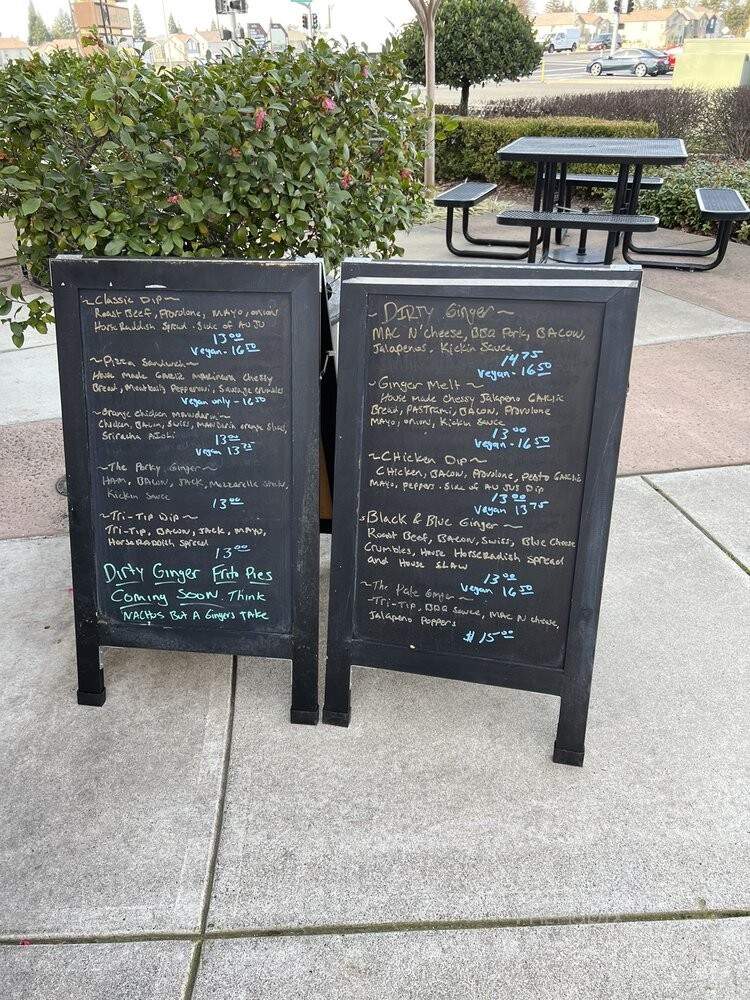 ~Classic Dip~
Roast Beef, Provolone, MAYO, onions
Horse Raddish Spread. Side of AU JU
13.00
Vegan - 16.50
~Pizza Sandwich~
House made Garlic marinara Cheesy
Bread, Meatballs, Pepperoni, Sausage crumbles
Vegan only - 16.50
~Orange Chicken Mandarin~
Chicken, Bacon, Swiss, Mandarin orange Slaw,
Sriratha Aioli
13.00
Vegan 13.75
~The Porky Ginger~
HAM, BACON, JACK, Mozzarella
Kickin Sauce
13.00
~Tri-Tip Dip~
Tri-Tip, BACON, JACK, MAYO,
Horse Raddish Spread
13.00
Dirty Ginger Frito Pies
Coming Soon. Think
NACHOS But A Gingers TAKE
~DIRTY Ginger~
MAC N'cheese, BBQ Pork, BACON,
Jalapenos, Kickin Sauce
14.75
Vegan - 16.50
~Ginger Melt~
House made chessy Jalapeno GARLIC
Bread, PASTrami, BACON, Provolone
MAYO, onion, Kickin Sauce
13.00
Vegan - 16.50
~CHicken Dip~
CHicken, BACON, Provolone, Pesto Garlic
MAYO, peppers. Side of AU JUS Dip
13.00
Vegan 13.75
~Black & Blue Ginger~
Roast Beef, Bacon, Swiss, Blue Cheese
Crumbles, House HorseRadish Spread
and House SLAW
13.00
Vegan 16.50
~The Pale Ginger~
Tri-Tip, BBQ Sauce, MAC N cheese,
Jalapeno Poppers
$15.00